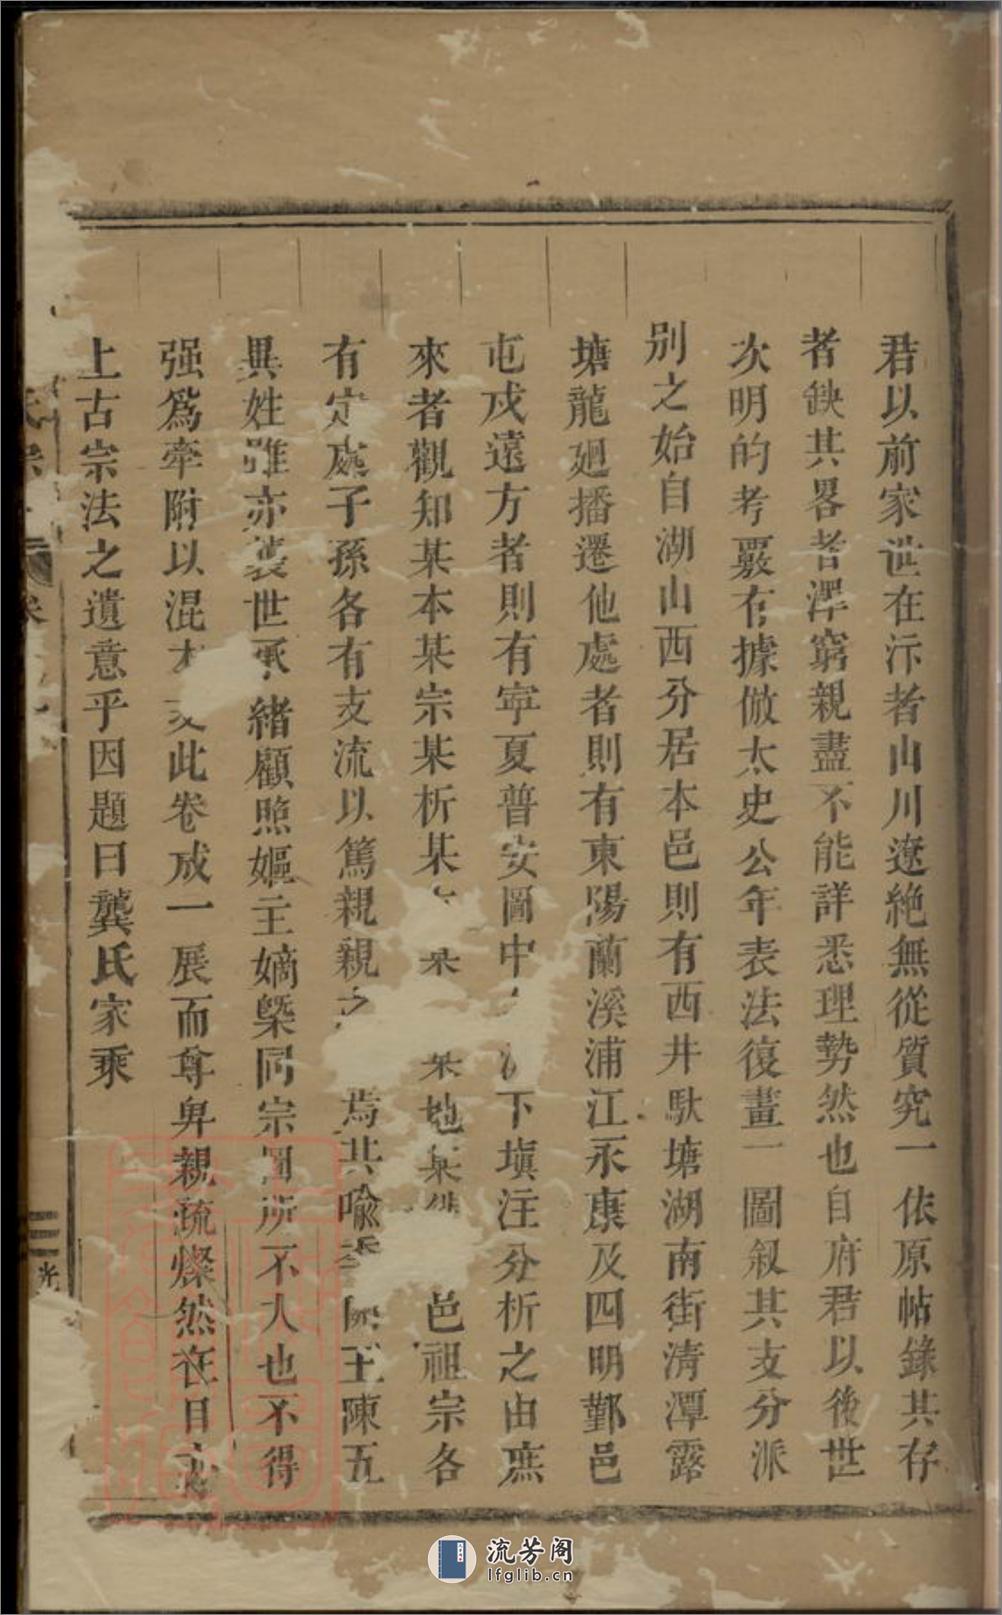 君以前家世在汴者山川遼絶無從質究一依原帖錄其存
者缺其畧者澤窮親盡不能詳悉理勢然也自府君以後世
次明的考覈有據倣太史公年表法復畫一圖叙其支分派
別之始自湖山西分居本邑則有西井馱塘湖南街清潭露
塘龍廻播遷他處者則有東陽蘭溪浦江永康及四明鄞邑
屯戍遠方者則有寧夏普安圖中下塡注分析之由庶
來者觀知某本某宗某析某某某地某邑祖宗各
有定處子孫各有支流以篤親親之焉其喻王陳五
異姓雖亦襲世承緒顧照嫗主嫡槩同宗圖所不入也不得
强爲牽附以混支此卷成一展而尊卑親疏燦然在目
上古宗法之遺意乎因題曰龔氏家乘
氏宗
卷
三
光
流芳阁
lfglib.cn